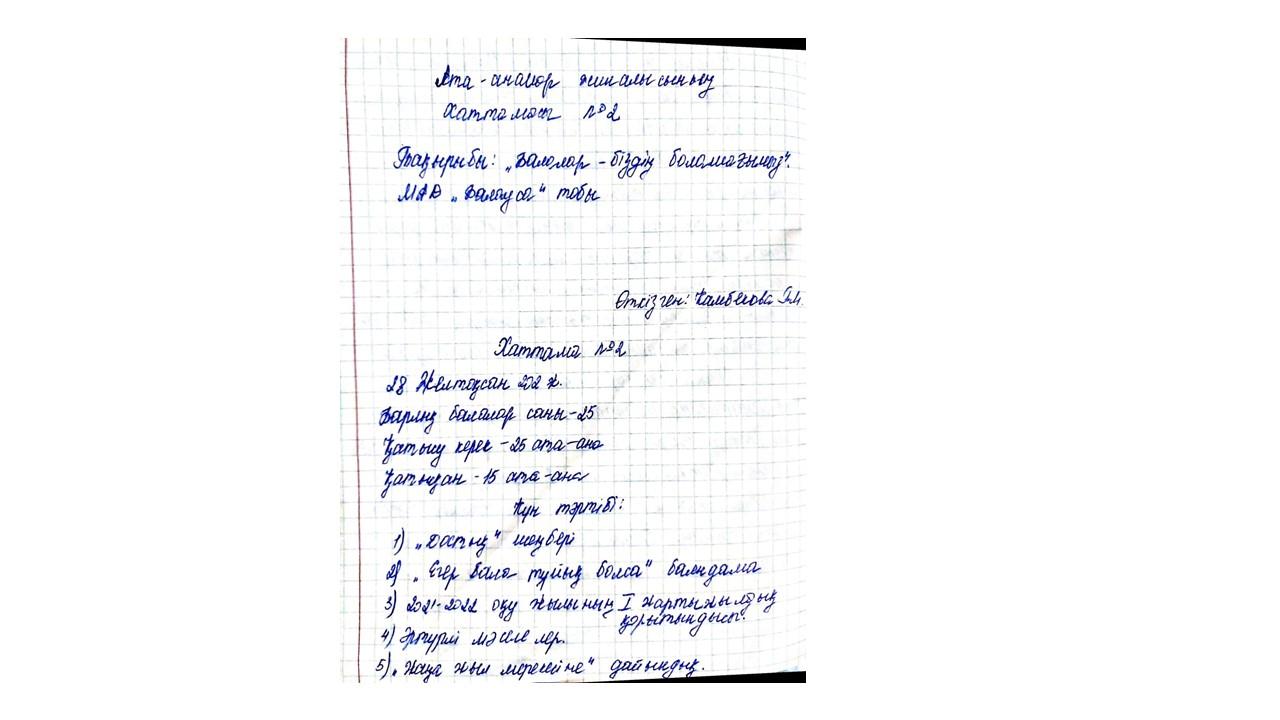 Ата-аналар жиналысының
Хаттамасы №2
Тақырыбы: „Балалар - біздің болашағымыз".
МАД „Балауса" тобы
Өткізген: Камбекова Г.М.
Хаттама №2
28 Желтоқсан 202 ж.
Барлық балалар саны-25
Қатысу керек -25 ата-ана
Қатысқан -15 ата-ана
Күн тәртібі:
1) „Достық" шеңбері
2) „Егер бала тұйық болса" баяндама
3) 2021-2022 оқу жылының I жартыжылдық
қорытындысы.
4) Әртүрлі мәселелер.
5) „Жаңа жыл мерекесіне" дайындық.